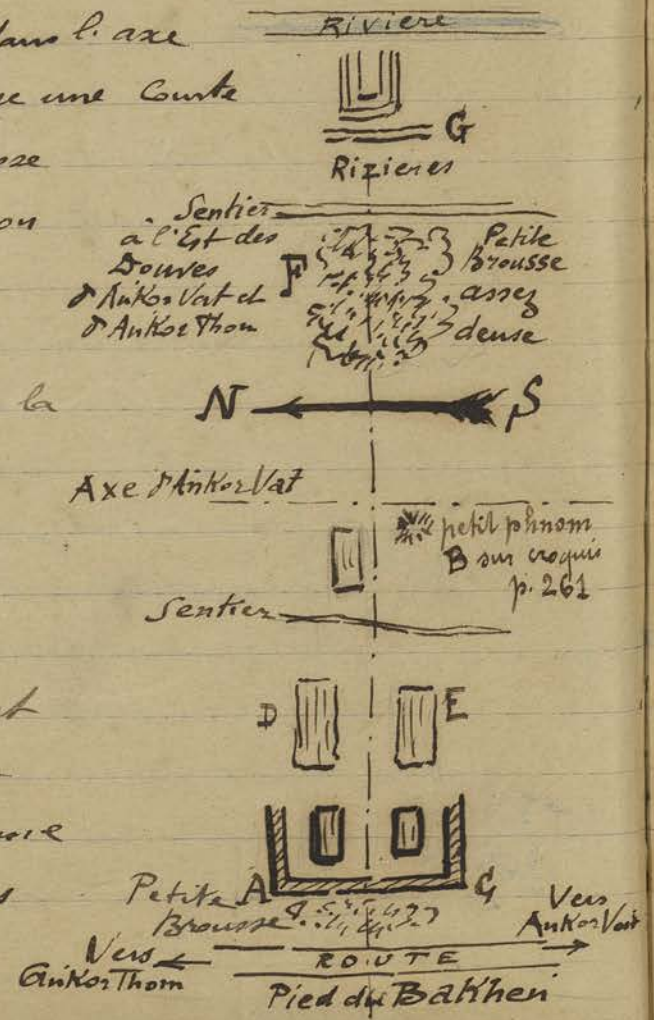 dans l'axe
une Courte
la
RIVIERE
G
Rizieres
Sentier
à l'Est des
Douves
d'AnKor Vat et
d'AnKor Thom
F
Petite
Brousse
assez
dense
N
S
Axe d'AnKor Vat
petit phnom
B sur croquis
p. 261
Sentier
D
E
A
C
Petite
Brousse
Vers
AnKor Vat
Vers
AnKor Thom
ROUTE
Pied du BaKhen